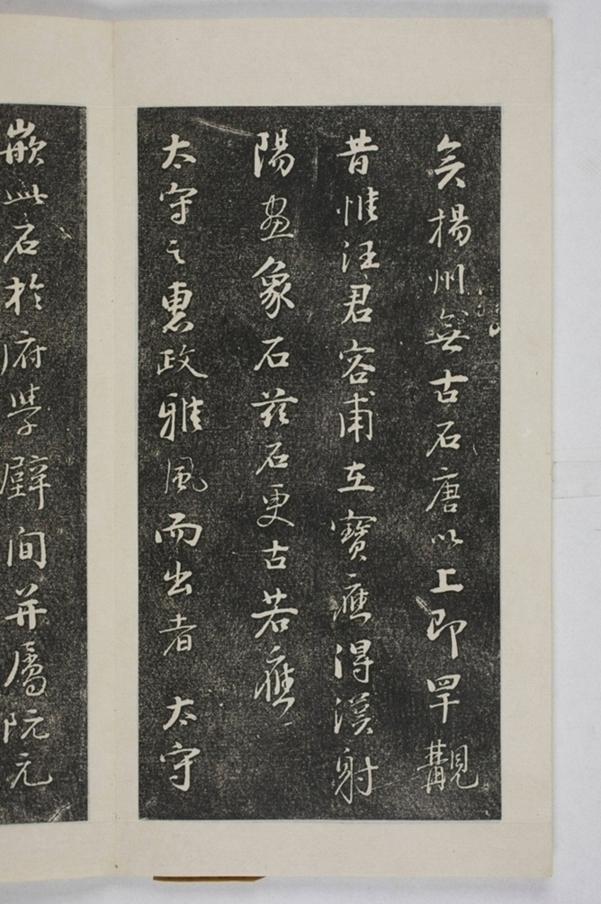 矣揚州無古石唐以上即罕覯
昔惟汪君容甫在寶應得漢射
陽畫象石茲石更古若應
太守之惠政雅風而出者 太守
嵌此石於府學壁間并屬阮元